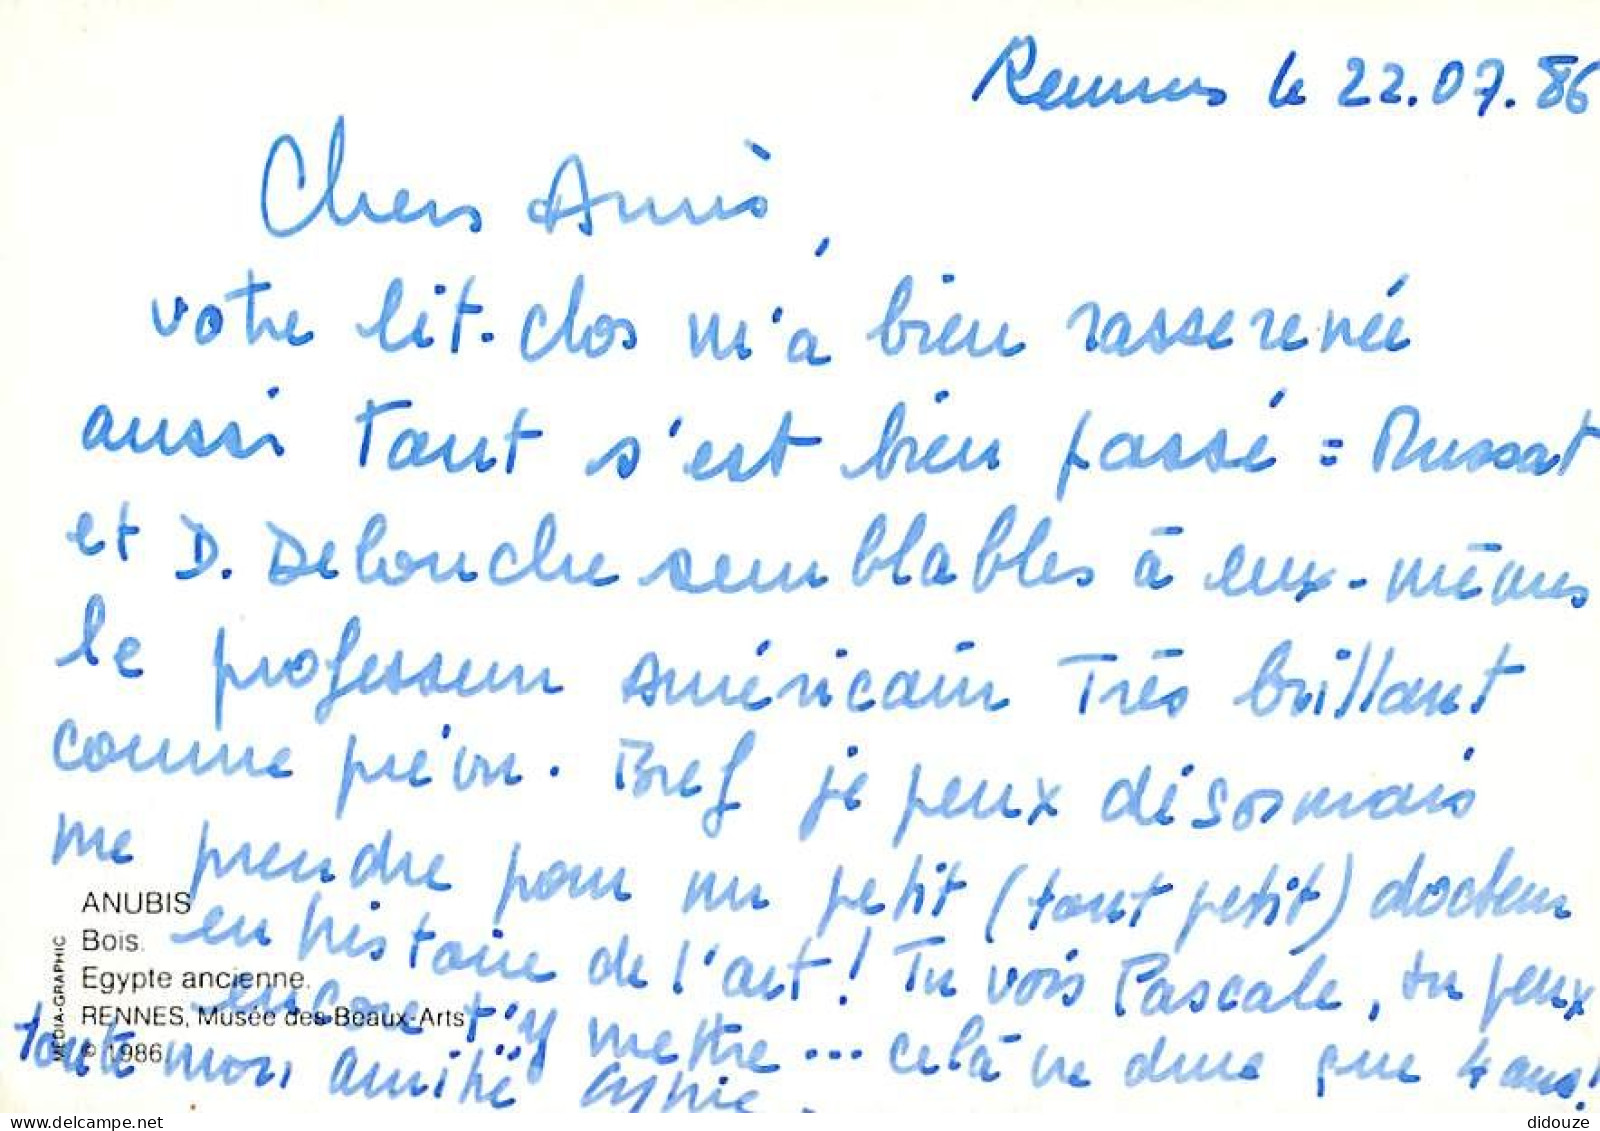 Rennes le 22.07.86
Chers Amis,
votre lit-clos m'a bien rasserenée
aussi tout s'est bien passé : Mussat
et D. Delouche semblables à eux-mêmes
le professeur américain Très brillant
comme prévu. Bref je peux désormais
me prendre pour un petit (tout petit) docteur
en histoire de l'art ! Tu vois Pascale, tu peux
encore t'y mettre ... celà ne dure que 4 ans !
toute mon amitié
ANUBIS
Bois.
Egypte ancienne.
RENNES, Musée des Beaux-Arts
© 1986
MEDIA-GRAPHIC
www.delcampe.net
didouze